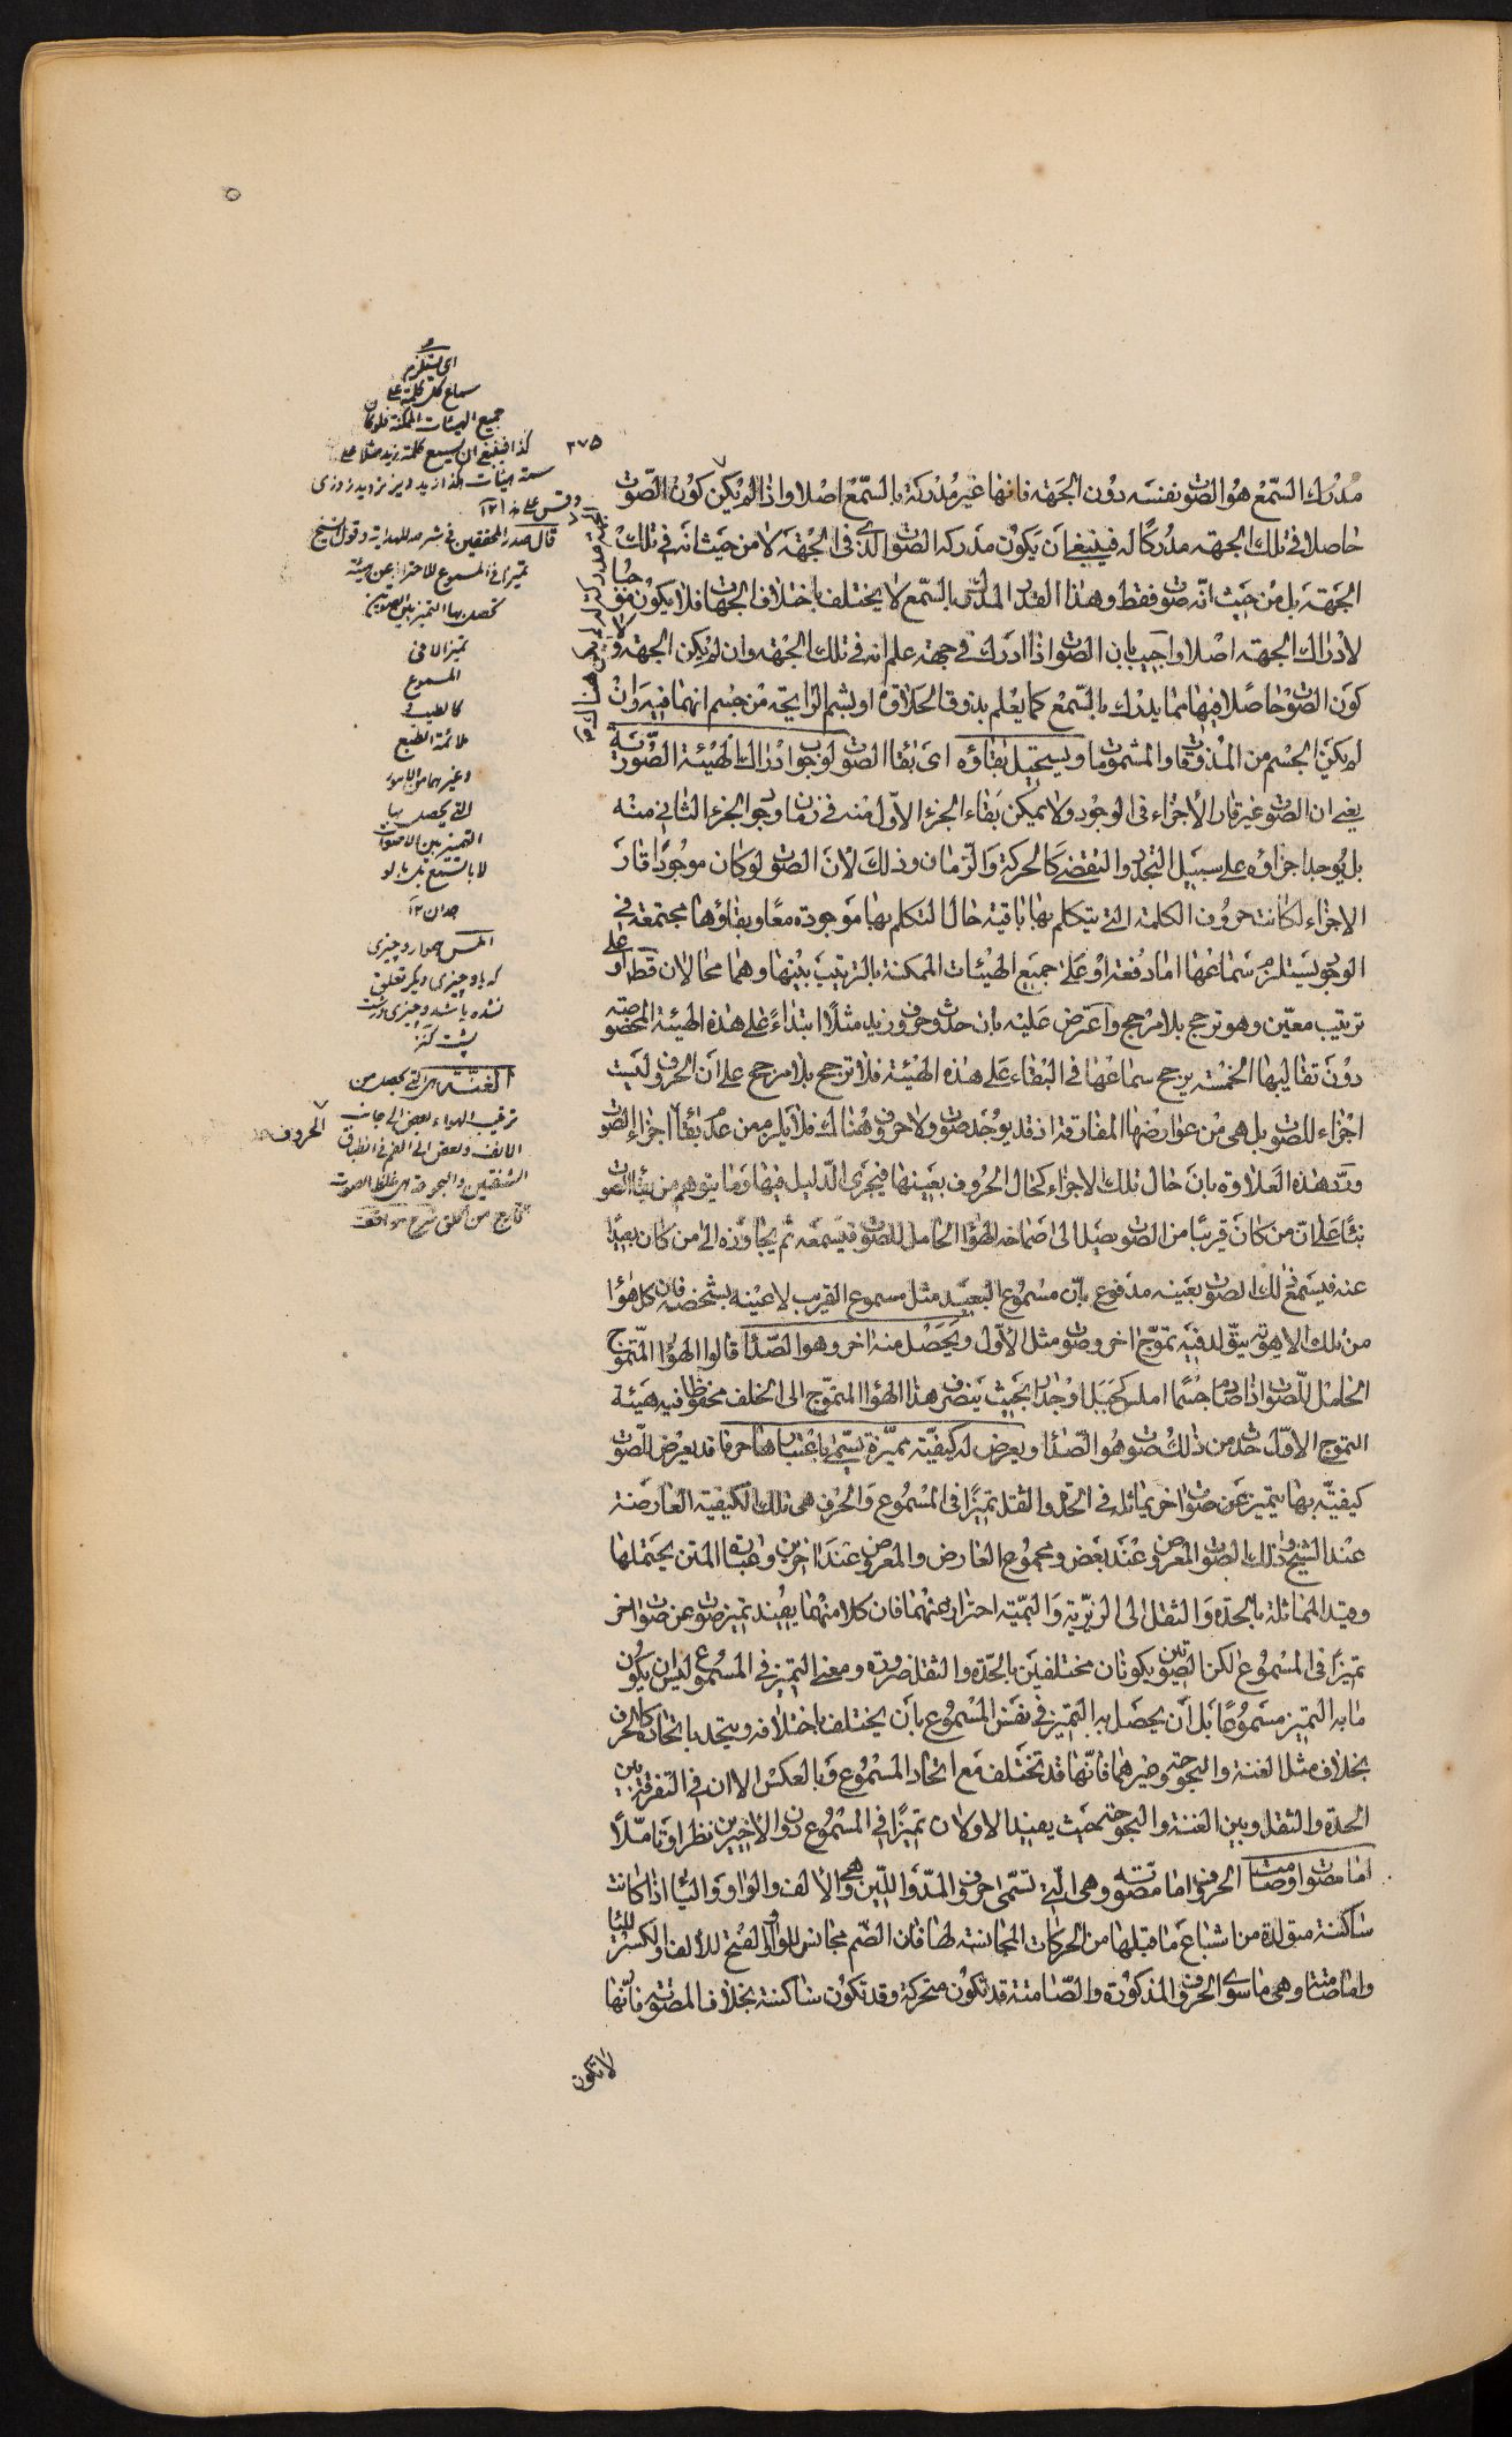 ٣٧٥
مدرك السمع هو الصوت نفسه دون الجهة فانها غير مدركة بالسمع اصلا واذا لم يكن كون الصوت
حاصلا فى تلك الجهة مدركا له فينبغى ان يكون مدركه الصوت الذى فى الجهة لا من حيث انه فى تلك
الجهة بل من حيث انه صوت فقط وهذا القدر المدرك بالسمع لا يختلف باختلاف الجهات فلا يكون موجبا
لادراك الجهة اصلا واجيب بان الصوت اذا ادرك فى جهة علم انه فى تلك الجهة وان لم يكن الجهة ولا
كون الصوت حاصلا فيها مما يدرك بالسمع كما يعلم بذوق الحلاوة او بشم الرايحة من جسم انهما فيه وان
لم يكن الجسم من المذوقات او المشمومات ويستحيل بقاؤه اى بقاء الصوت لوجوب ادراك الهيئة الصورية
يعنى ان الصوت غير قار الأجزاء فى الوجود ولا يمكن بقاء الجزء الاول منه فى زمان وجود الجزء الثانى منه
بل يوجد اجزاؤه على سبيل التجدد والتقضى كالحركة والزمان وذلك لان الصوت لو كان موجودا قار
الاجزاء لكانت حروف الكلمة التى يتكلم بها باقية حال التكلم بها موجودة معا وبقاؤها مجتمعة فى
الوجود يستلزم سماعها اما دفعة او على جميع الهيئات الممكنة بالترتيب بينها وهما محالان قطعا او على
ترتيب معين وهو ترجح بلا مرجح واعترض عليه بان حدوث حروف زيد مثلا ابتداء على هذه الهيئة المخصوصة
دون تقاليبها الخمسة يرجح سماعها فى البقاء على هذه الهيئة فلا ترجح بلا مرجح على ان الحروف ليست
اجزاء للصوت بل هى من عوارضها المفارقة اذ قد يوجد صوت ولا حروف هنالك فلا يلزم من عدم بقائها اجزاء الصوت
ورد هذه العلاوة بان حال تلك الاجزاء كحال الحروف بعينها فيجرى الدليل فيها وما يتوهم من بقاء الصوت
بناء على ان من كان قريبا من الصوت يصل الى صماخه الهواء الحامل للصوت فيسمعه ثم يجاوزه الى من كان بعيدا
عنه فيسمع ذلك الصوت بعينه مدفوع بان مسموع البعيد مثل مسموع القريب لا عينه بشخصه فان كل هواء
من تلك الاهوية يتولد فيه تموج اخر وصوت مثل الاول ويحصل منه اخر وهو الصدا قالوا الهواء المتموج
الحامل للصوت اذا صادم جسما املس كجبل او جدار بحيث ينصرف هذا الهواء المتموج الى الخلف محفوظا فيه هيئة
التموج الاول حدث من ذلك صوت هو الصدا ويعرض له كيفية مميزة يسمى باعتبارها حرفا قد يعرض للصوت
كيفية بها يتميز عن صوت اخر يماثله فى الحدة والثقل تميزا فى المسموع والحرف هى تلك الكيفية العارضة
عند الشيخ وذلك الصوت المعروض عند بعض ومجموع العارض والمعروض عند اخرين وعبارة المتن يحتملها
وقيد المماثلة بالحدة والثقل الى الزيرية والبمية احترازا عنهما فان كلا منهما يفيد تميز صوت عن صوت اخر
تميزا فى المسموع لكن الصوتين يكونان مختلفين بالحدة والثقل ضرورة ومعنى التميز فى المسموع ليس ان يكون
ما به التميز مسموعا بل ان يحصل به التميز فى نفس المسموع بان يختلف باختلافه ويتحد باتحاده كالحرف
بخلاف مثل الغنة والبحوحة وغيرهما فانها قد تختلف مع اتحاد المسموع وبالعكس الا ان فى التفرقة بين
الحدة والثقل وبين الغنة والبحوحة حيث يفيد الاولان تميزا فى المسموع دون الاخيرين نظرا وتاملا
اما مصوت او صامت الحروف اما مصوتة وهى التى تسمى حروف المد واللين وهى الالف والواو والياء اذا كانت
ساكنة متولدة من اشباع ما قبلها من الحركات المجانسة لها فان الضم مجانس للواو والفتح للألف والكسر للياء
واما صامتة وهى ما سوى الحروف المذكورة والصامتة قد تكون متحركة وقد تكون ساكنة بخلاف المصوتة فانها
لا تكون
اى يستلزم
سماع كل كلمة على
جميع الهيئات الممكنة فلو كان
كذا فينبغى ان يسمع كلمة زيد مثلا على
ستة هيئات
وقس على هذا ١٢
قال صدر المحققين فى شرحه للهداية وقول الشيخ
تميزا فى المسموع للاحتراز عن هيئة
تحصل بها التميز بين الصوتين
تميزا لا فى
المسموع
كالطيب و
ملائمة الطبع
وغيرهما من الامور
التى يحصل بها
التميز بين الاصوات
املس هموار وچیزی
که باو چیزی دیگر تعلق
نشده باشد وچیزی درشت
پشت
الغنة هى التى يحصل من
ترغيب الهواء بعض الى جانب
الانف وبعض الى الفم فى انطباق
الشفتين والبحوحة هى غلظ الصوت
الخارج من الحلق شرح مواقف
الحروف